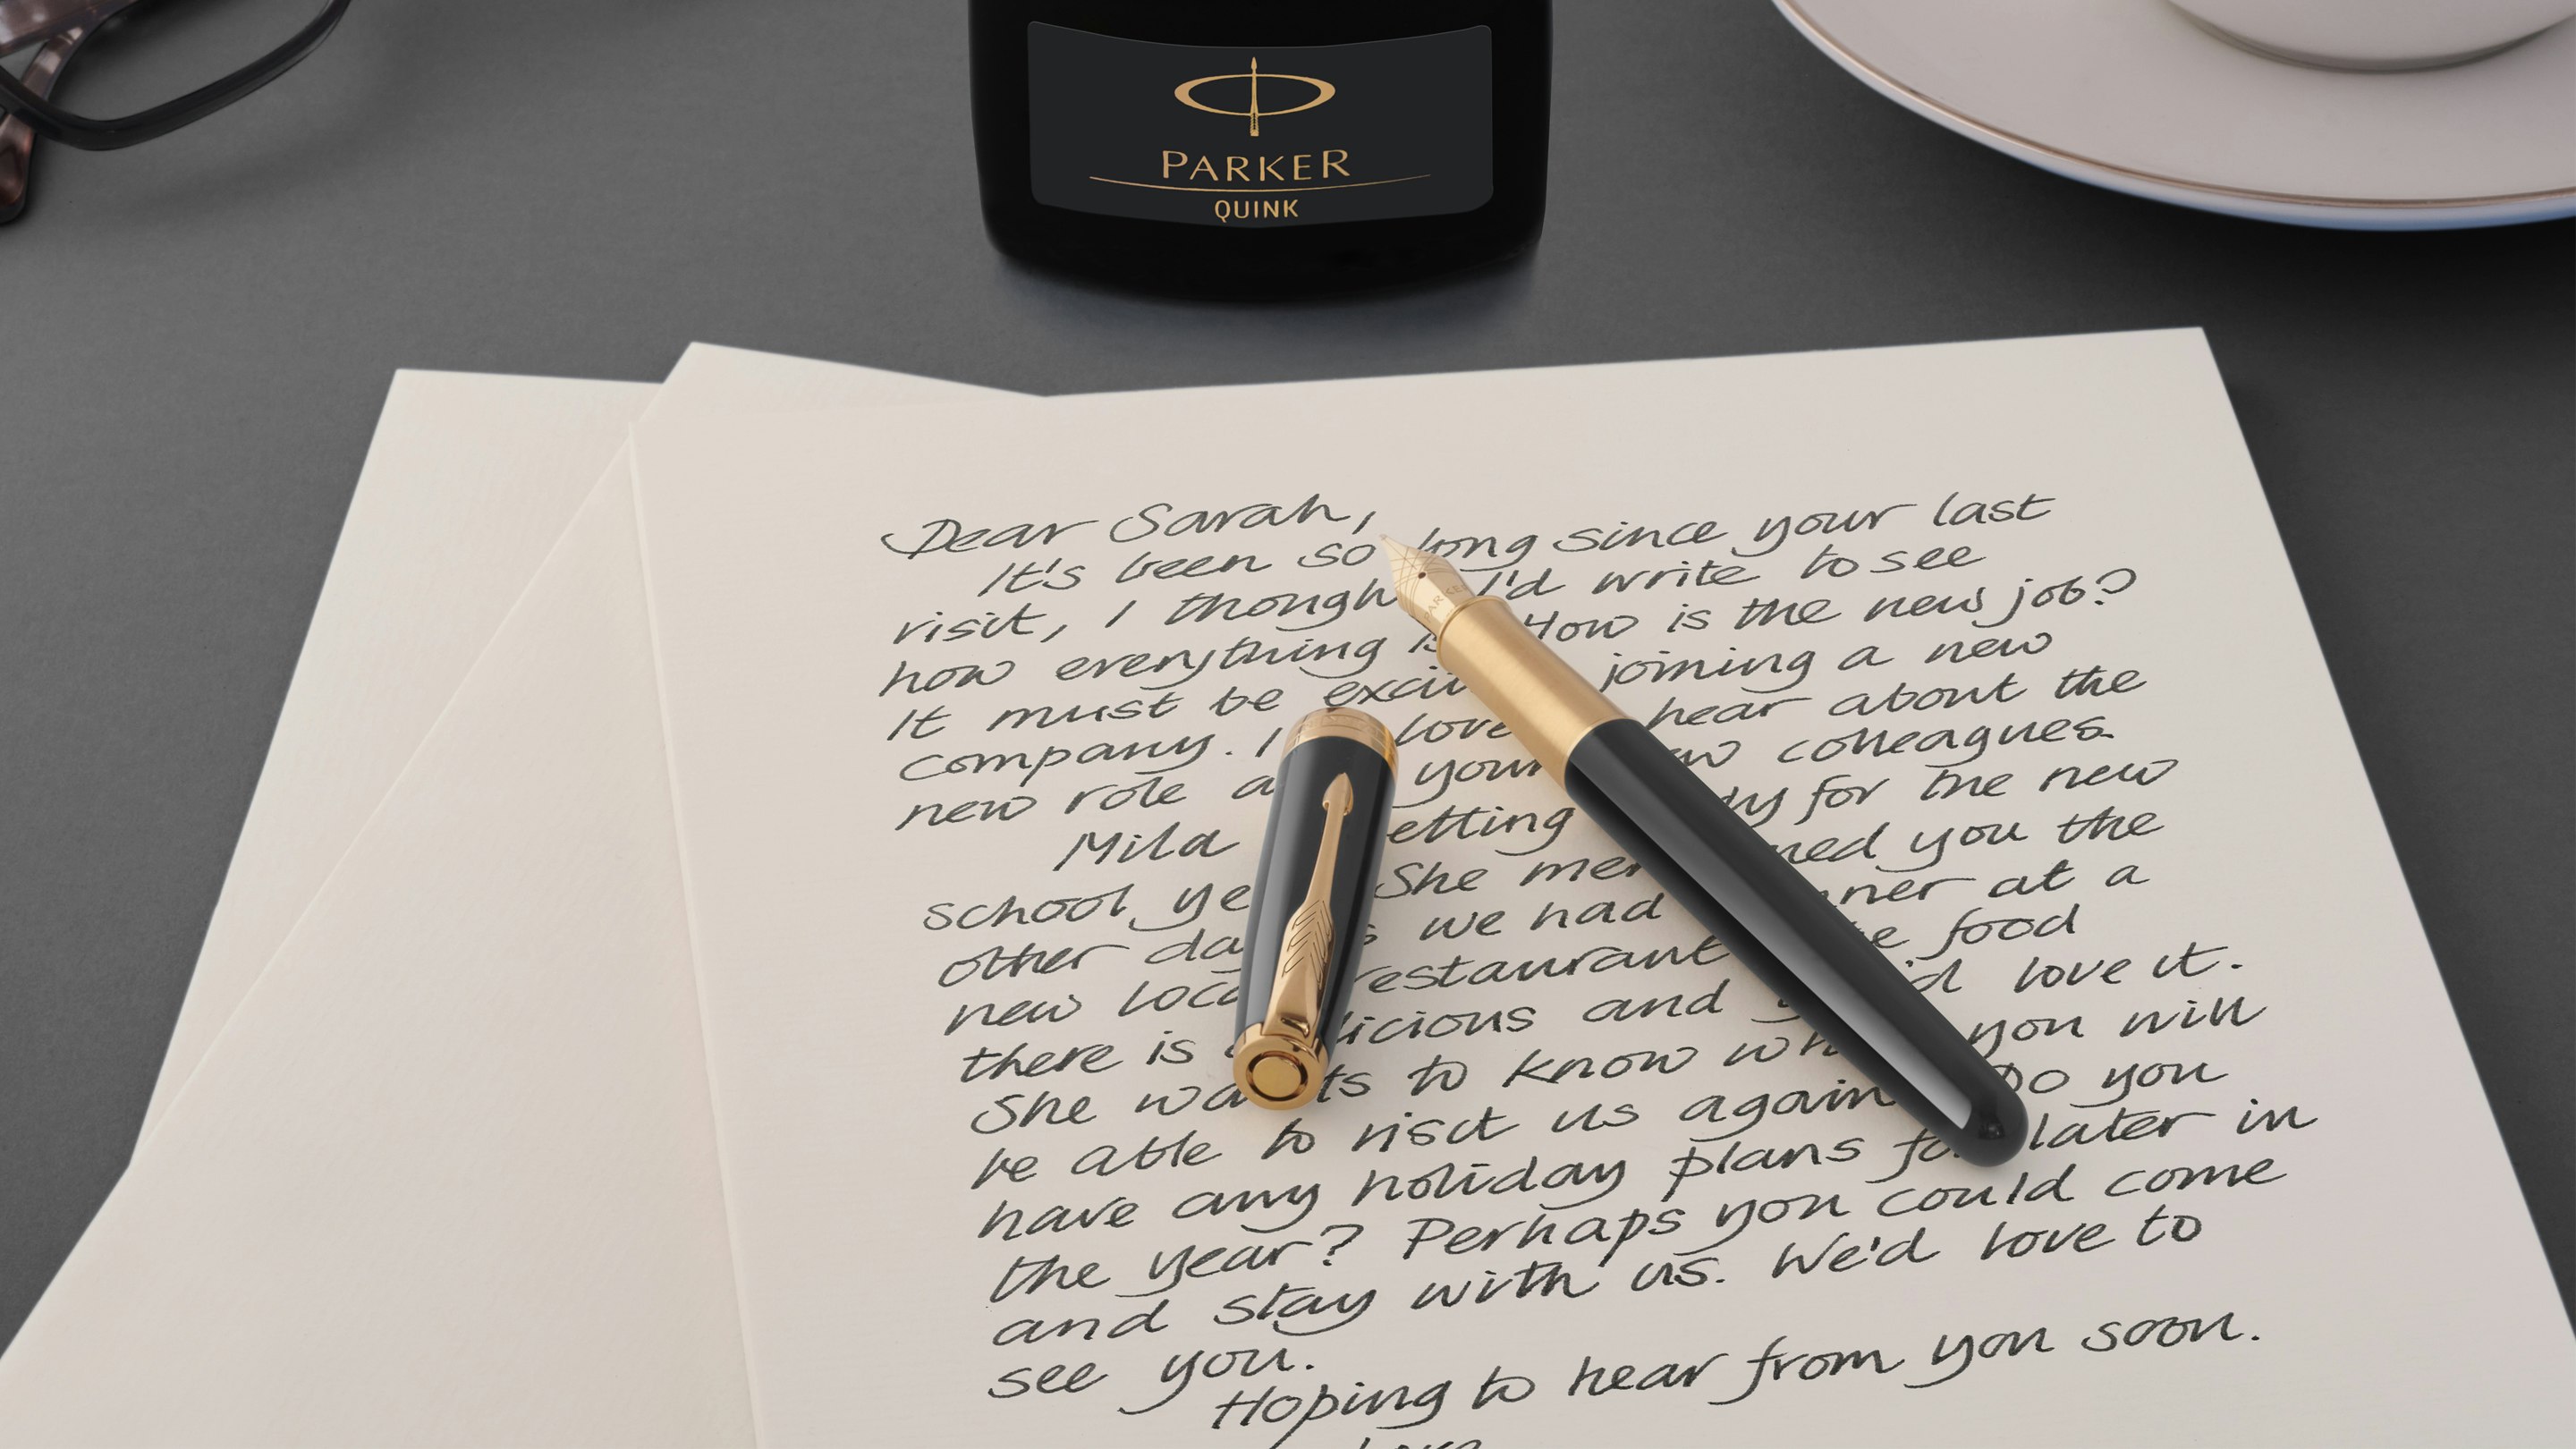 PARKER
QUINK
Dear Sarah,
It's been so long since your last
visit, I though I'd write to see
how everything is How is the new job?
It must be exci joining a new
company. I love hear about the
new role a your w colleagues.
Mila etting dy for the new
school ye She men ned you the
other da s we had nner at a
new loca restaurant e food
there is licious and y d love it.
She wants to know wh you will
be able to visit us again Do you
have any holiday plans fo later in
the year? Perhaps you could come
and stay with us. We'd love to
see you.
Hoping to hear from you soon.
PARKER